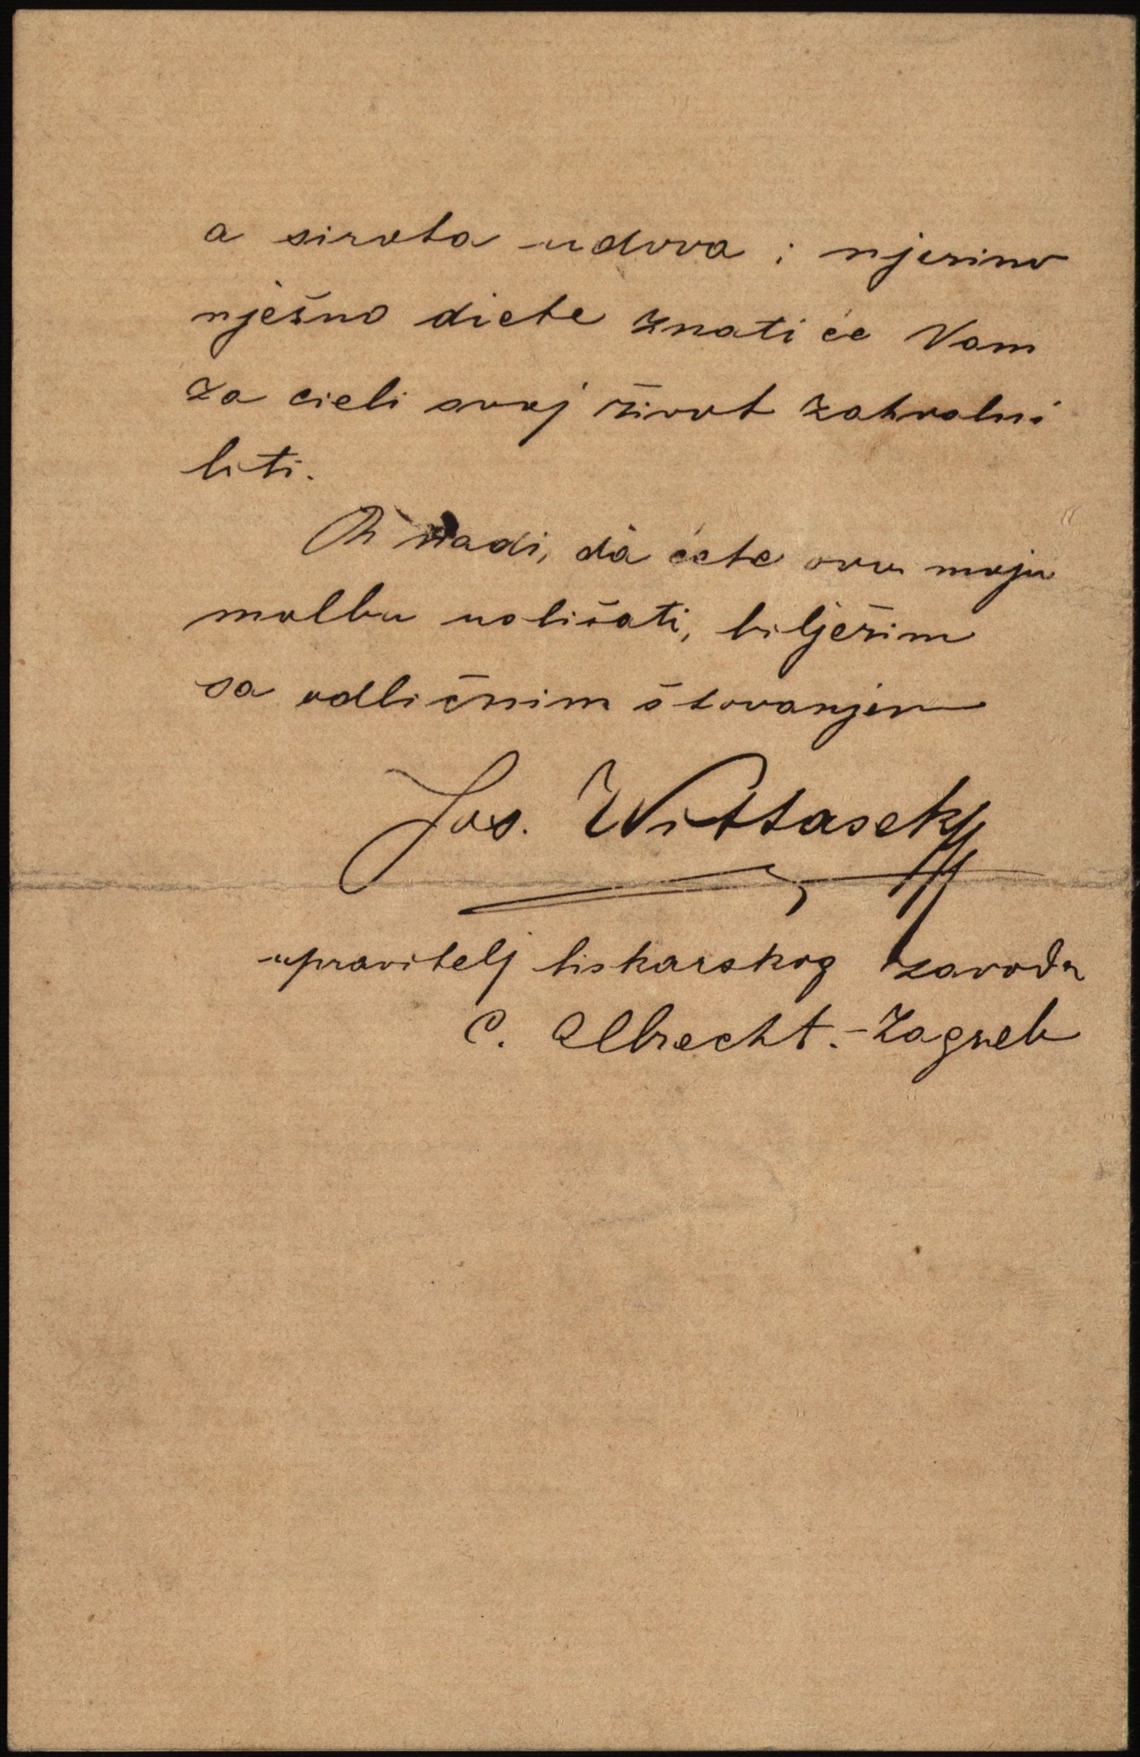 a sirota udova i njezino
nježno diete znati će Vam
za cieli svoj život zahvalni
biti.
U nadi, da ćete ovu moju
molbu uslišati, bilježim
sa odličnim štovanjem
Jos. Wittasek
upravitelj tiskarskog zavoda
C. Albrecht. - Zagreb